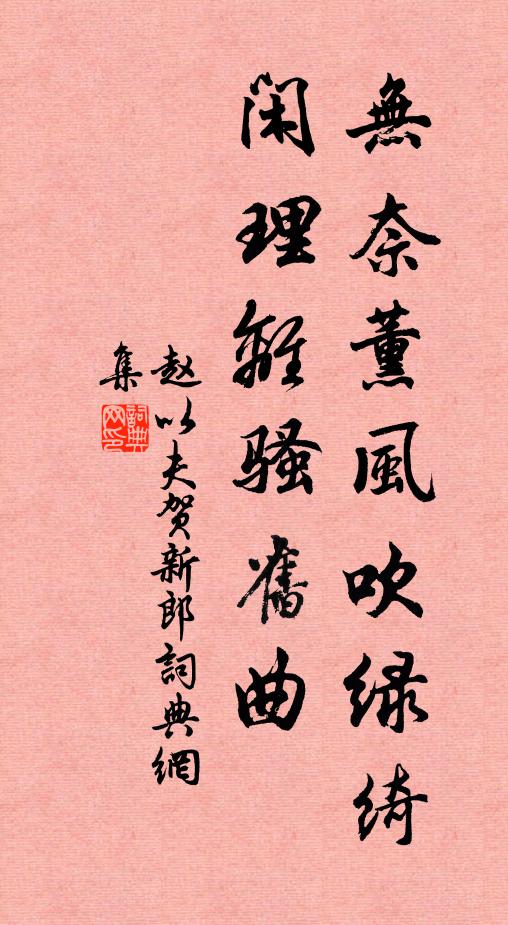 無奈薰風吹綠綺
閑理離騷舊曲
赵以夫贺新郎詞典網
集
詞典网印